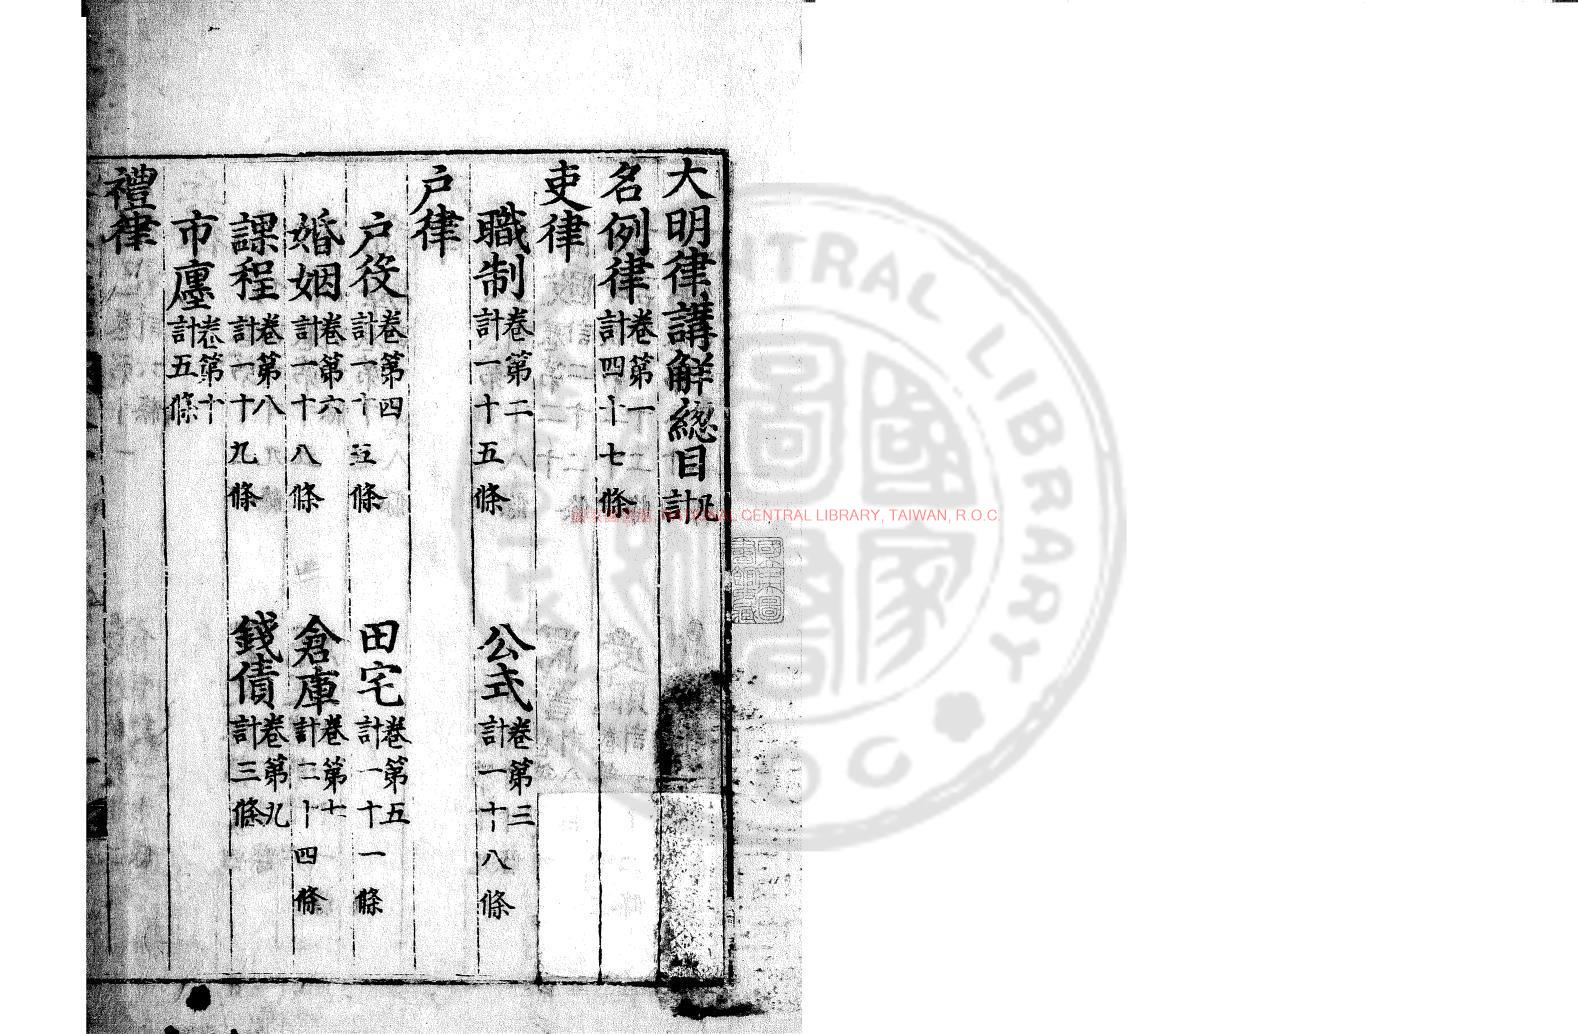 大明律講解總目 凡計
名例律 卷第一 計四十七條
吏律
職制 卷第二 計一十五條
公式 卷第三 計一十八條
户律
户役 卷第四 計一十五條
田宅 卷第五 計一十一條
婚姻 卷第六 計一十八條
倉庫 卷第七 計二十四條
課程 卷第八 計一十九條
錢債 卷第九 計三條
市廛 卷第十 計五條
禮律
NATIONAL CENTRAL LIBRARY, TAIWAN, R.O.C.
CENTRAL LIBRARY
ROC